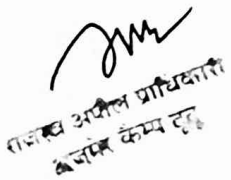 राजस्व अपील प्राधिकारी
अजमेर कैम्प टूटू